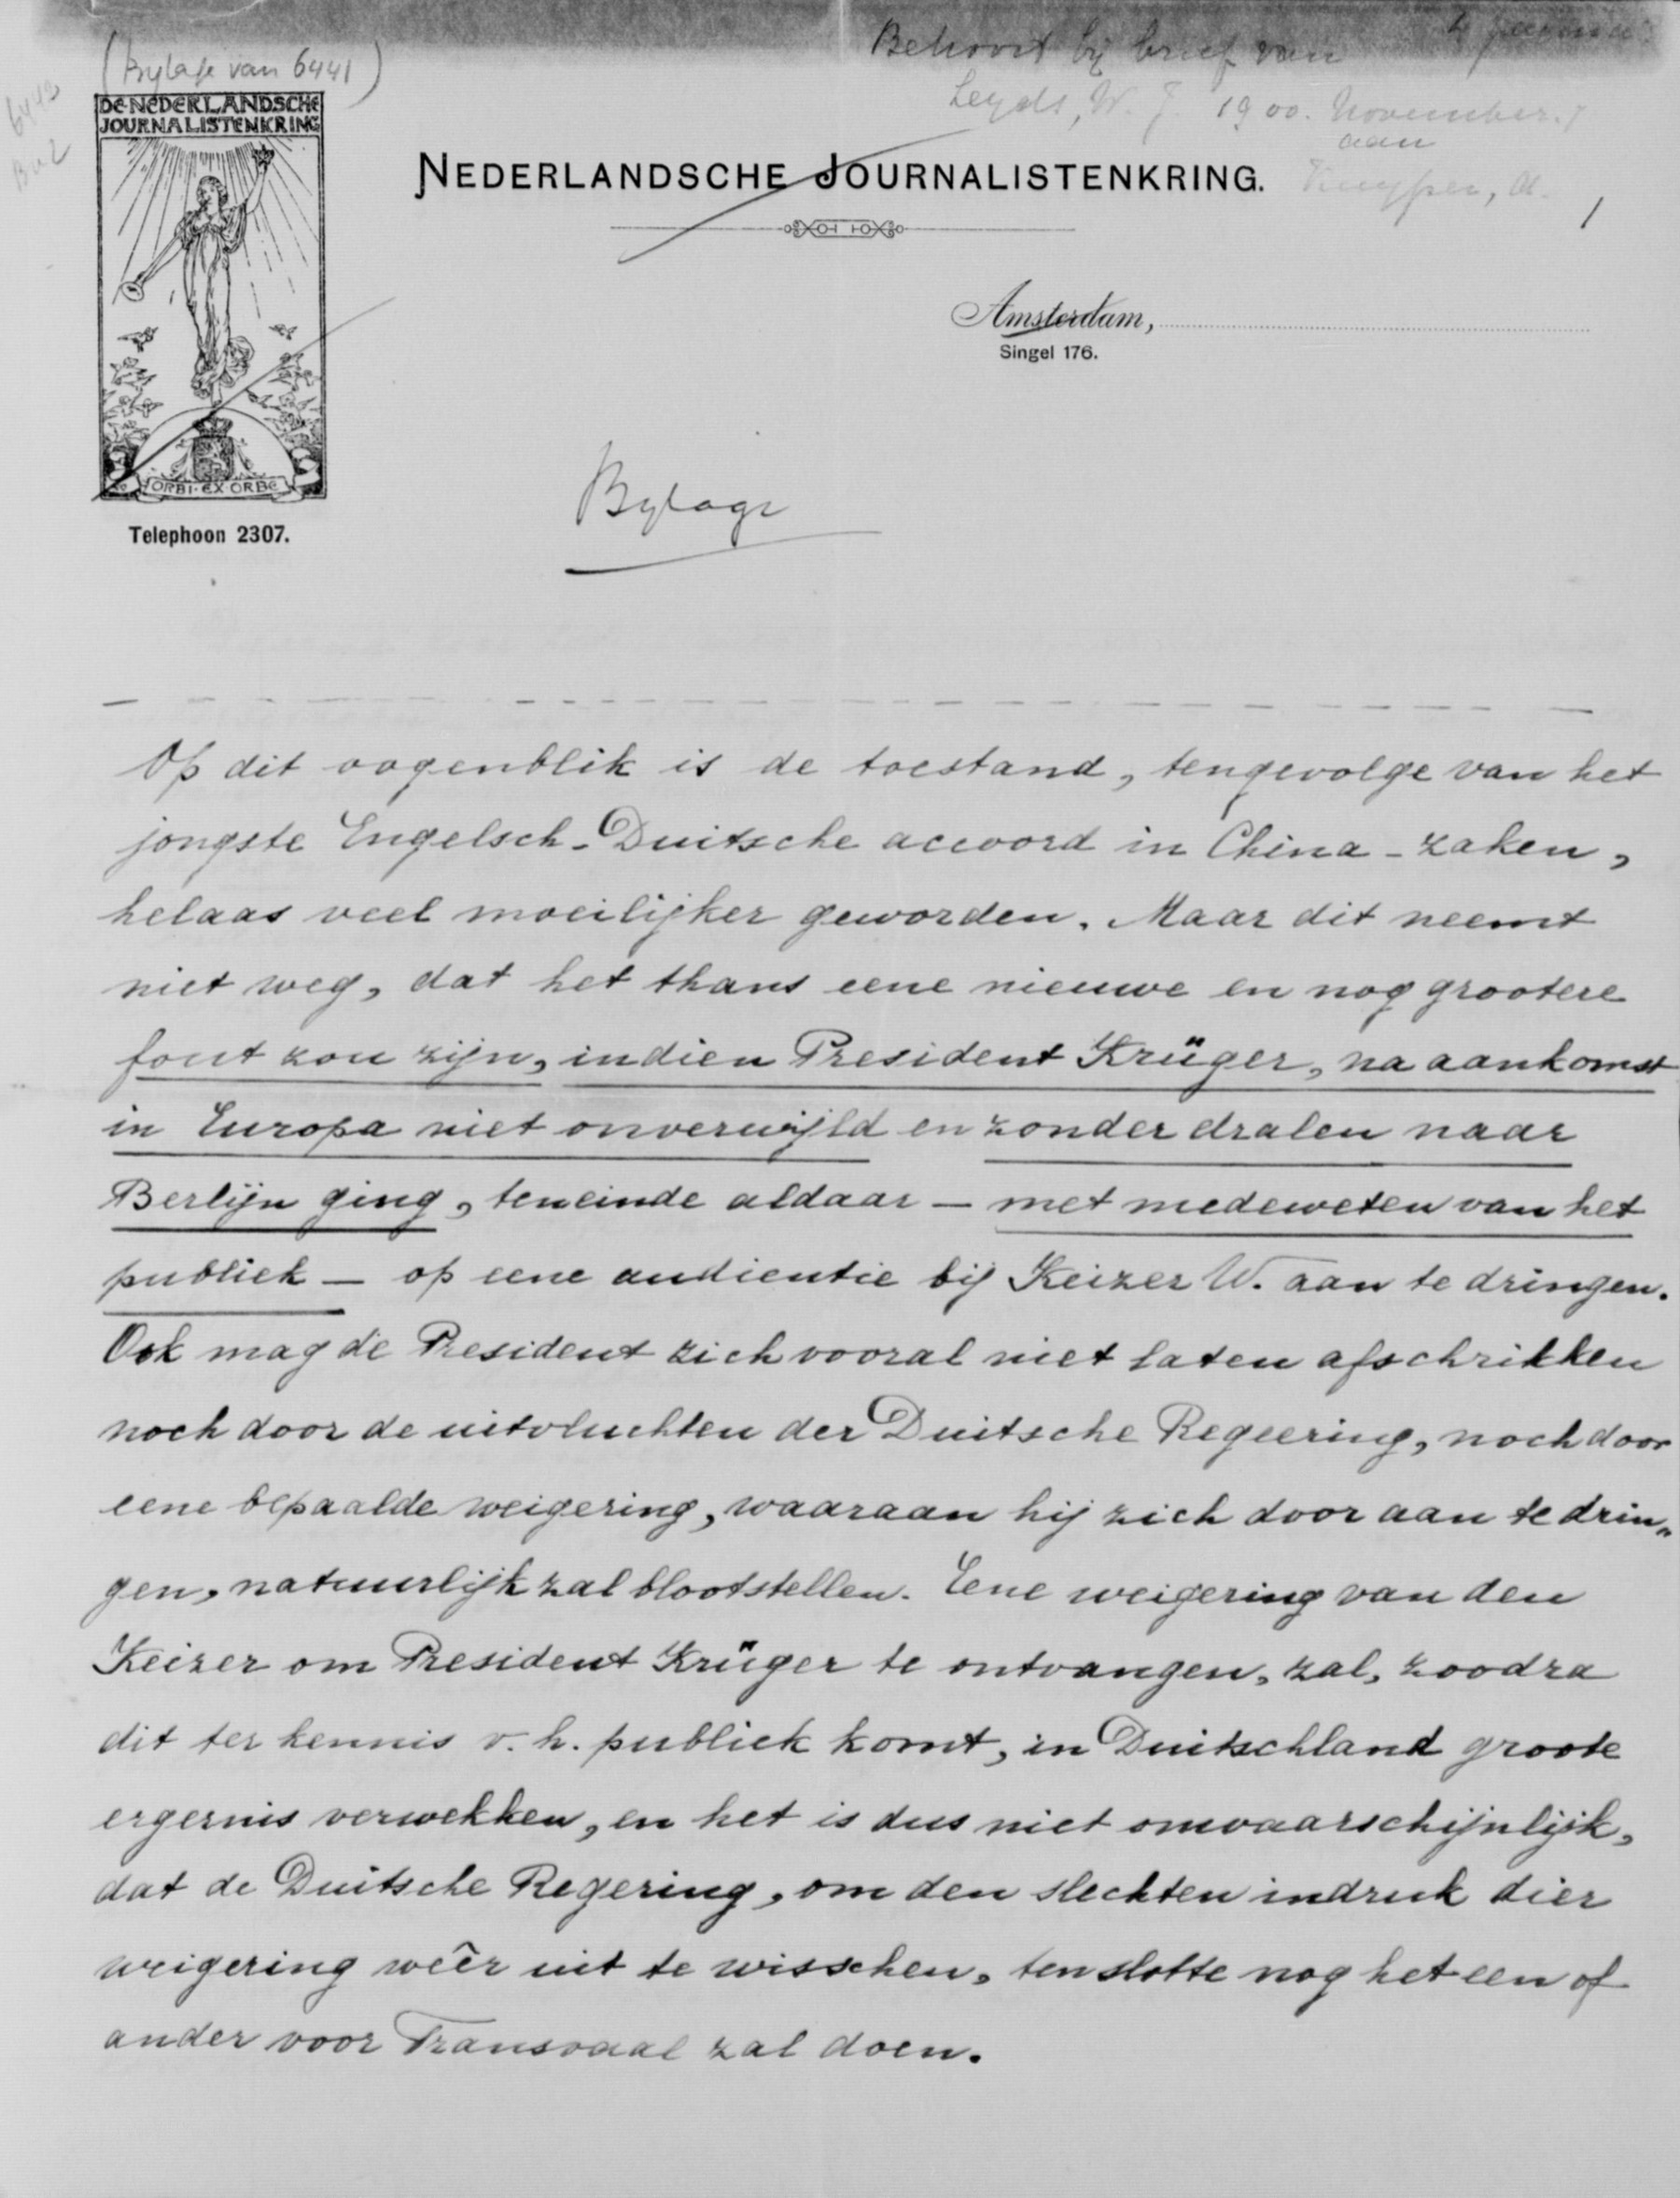 (Bylage van 6441)
Behoort bij brief van
Leyds, W. J. 1900. November 7
aan
Kuyper, A.
1
DE NEDERLANDSCHE
JOURNALISTENKRING
NEDERLANDSCHE JOURNALISTENKRING.
Amsterdam,
Singel 176.
ORBI · EX ORBE
Telephoon 2307.
Bylage
Op dit oogenblik is de toestand, tengevolge van het
jongste Engelsch-Duitsche accoord in China-zaken,
helaas veel moeilijker geworden. Maar dit neemt
niet weg, dat het thans eene nieuwe en nog grootere
fout zou zijn, indien President Krüger, na aankomst
in Europa niet onverwijld en zonder dralen naar
Berlijn ging, teneinde aldaar — met medeweten van het
publiek — op eene audientie bij Keizer W. aan te dringen.
Ook mag de President zich vooral niet laten afschrikken
noch door de uitvluchten der Duitsche Regeering, noch door
eene bepaalde weigering, waaraan hij zich door aan te drin„
gen, natuurlijk zal blootstellen. Eene weigering van den
Keizer om President Krüger te ontvangen, zal, zoodra
dit ter kennis v. h. publiek komt, in Duitschland groote
ergernis verwekken, en het is dus niet onwaarschijnlijk,
dat de Duitsche Regering, om den slechten indruk dier
weigering wêer uit te wisschen, ten slotte nog het een of
ander voor Transvaal zal doen.